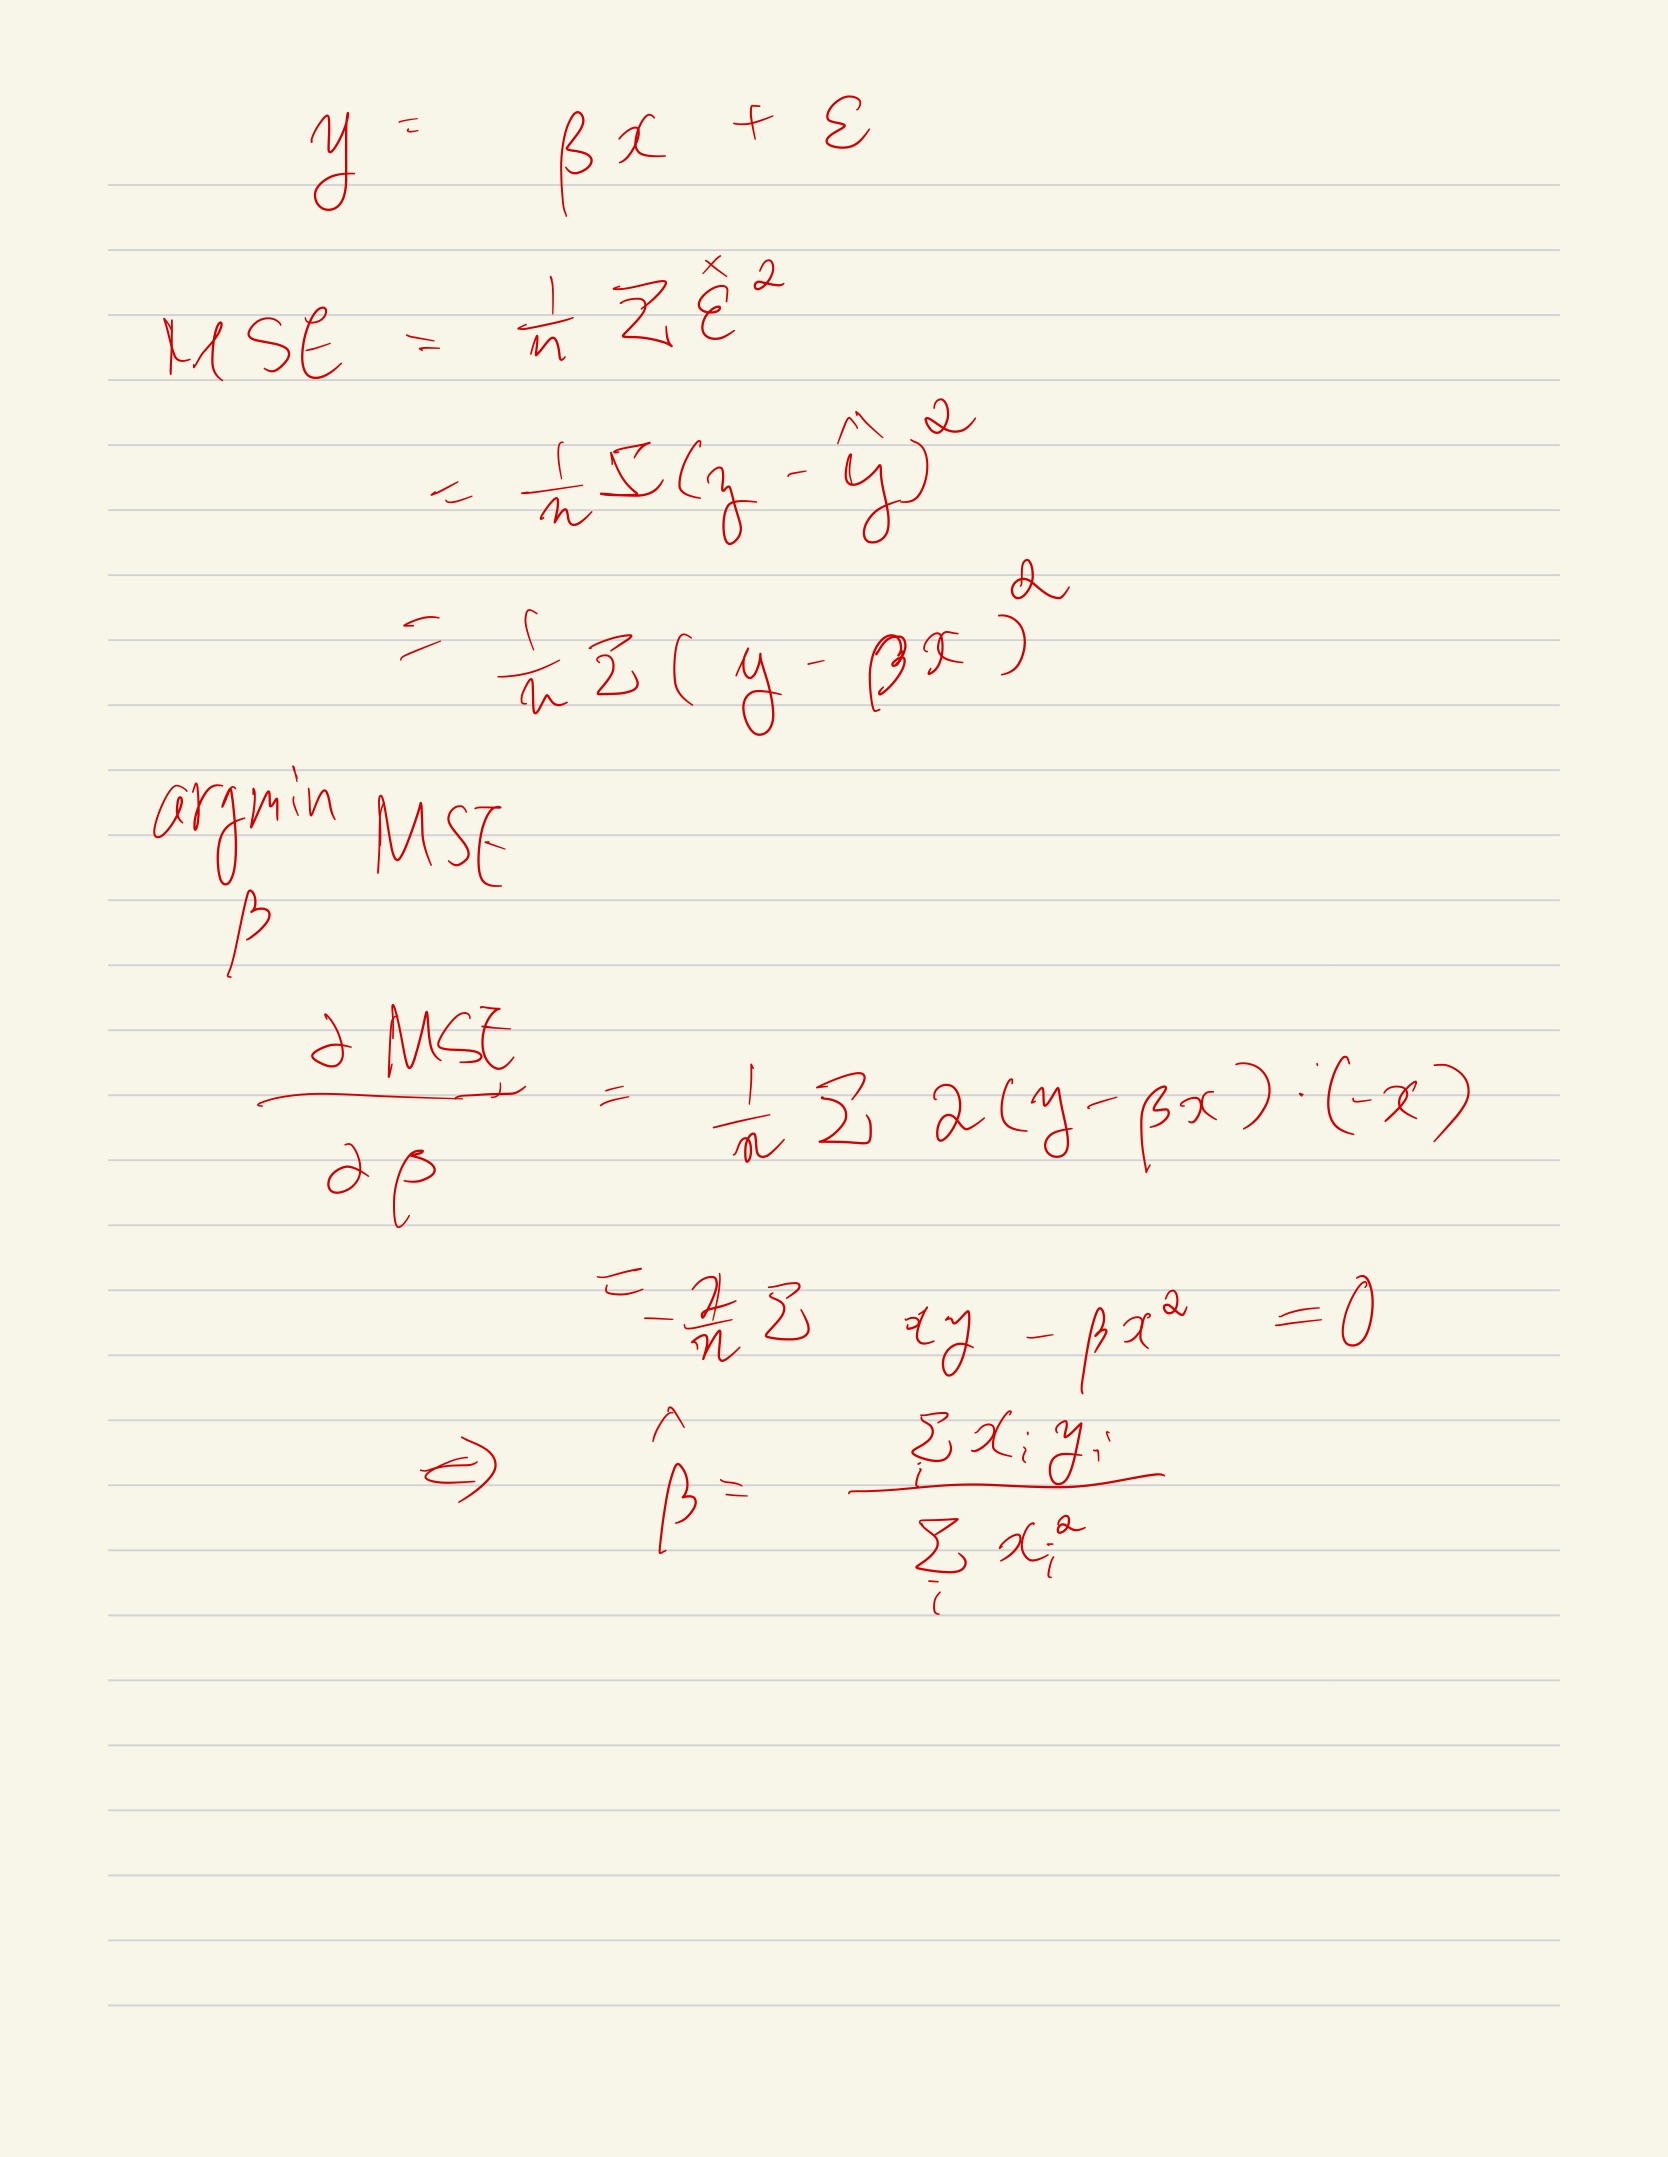 y = βx + ε
MSE = 1/n Σ ε̂²
= 1/n Σ(y - ŷ)²
= 1/n Σ(y - βx)²
argmin MSE
β
∂MSE/∂β = 1/n Σ 2(y - βx)·(-x)
= -2/n Σ xy - βx² = 0
⇔ β̂ = Σᵢ xᵢyᵢ / Σᵢ xᵢ²